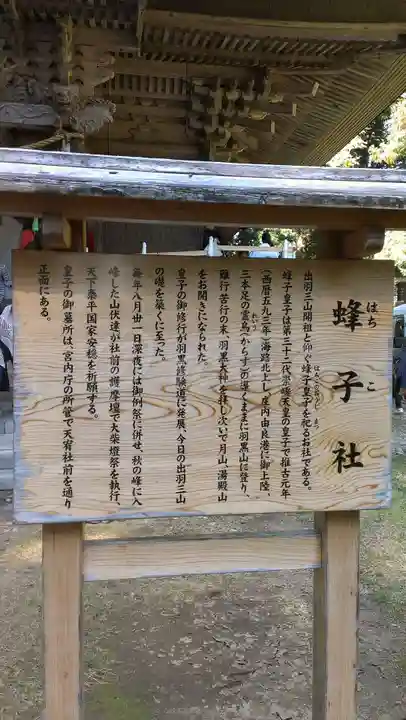 蜂子社
はち こ
出羽三山開祖と仰ぐ蜂子皇子を祀るお社である。
はちこのおうじ まつ
蜂子皇子は第三十二代崇峻天皇の皇子で推古元年
(西暦五九三年)海路北上し、庄内由良浜に御上陸、
三本足の霊烏(からす)の導くままに羽黒山に登り、
れいう
難行苦行の末、羽黒大神を拝し次いで月山、湯殿山
をお開きになられた。
皇子の御修行が羽黒修験道に発展、今日の出羽三山
の礎を築くに至った。
毎年八月卅一日深夜には御例祭に併せ、秋の峰に入
峰した山伏達が社前の護摩壇で大柴燈祭を執行、
天下泰平国家安穏を祈願する。
皇子の御墓所は、宮内庁の所管で天宥社前を通り
正面にある。